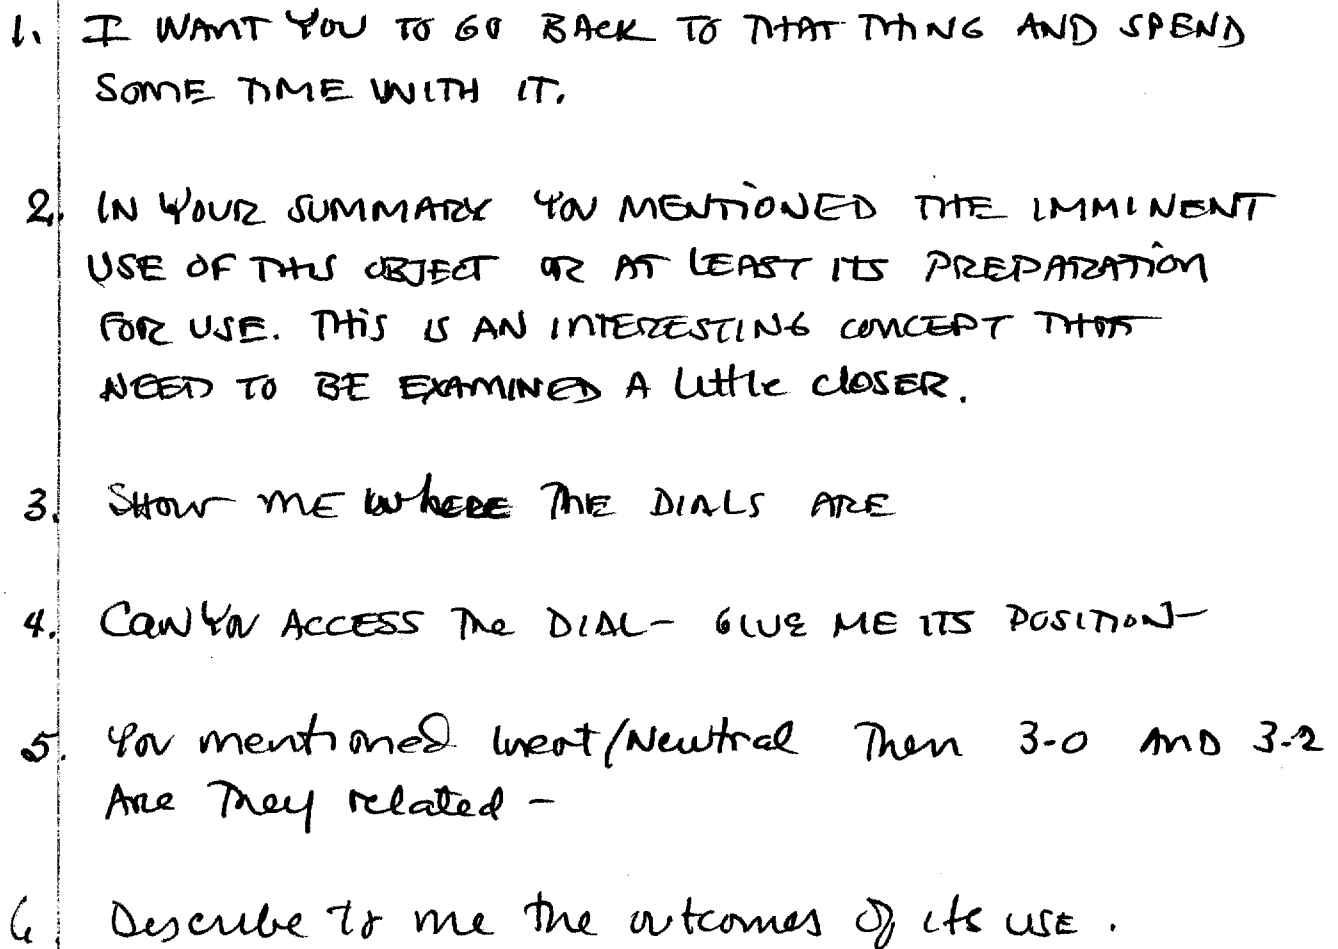 1. I WANT YOU TO GO BACK TO THAT THING AND SPEND
SOME TIME WITH IT.
2. IN YOUR SUMMARY YOU MENTIONED THE IMMINENT
USE OF THIS OBJECT OR AT LEAST ITS PREPARATION
FOR USE. THIS IS AN INTERESTING CONCEPT THAT
NEED TO BE EXAMINED A little closer.
3. SHOW ME WHERE THE DIALS ARE
4. CAN YOU ACCESS The DIAL - GIVE ME ITS POSITION -
5. You mentioned Inert/Neutral Then 3-0 AND 3-2
Are They related -
6. Describe to me the outcomes of its USE.